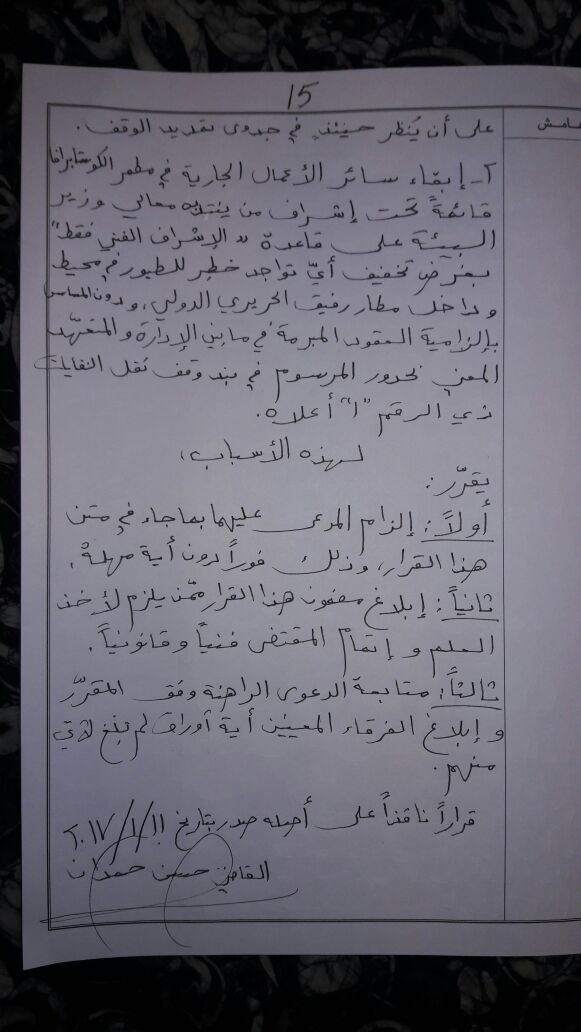 15
هامش
على أن يُنظر حينئذٍ في جدوى تمديد الوقف.
٢- إبقاء سائر الأعمال الجارية في مطمر الكوستابرافا
قائمةً تحت إشراف من ينتدبه معالي وزير
البيئة على قاعدة "الإشراف الفني فقط"
بغرض تخفيف أيّ تواجد خطِر للطيور في محيط
وداخل مطار رفيق الحريري الدولي، ودون المساس
بإلزامية العقود المبرمة في ما بين الإدارة والمتعهّد
المعني لحدود المرسوم في بند وقف نقل النفايات
ذي الرقم "١" أعلاه.
لهذه الأسباب،
يقرّر:
أولاً: إلزام المدعى عليهما بما جاء في متن
هذا القرار، وذلك فوراً دون أية مهلة.
ثانياً: إبلاغ مضمون هذا القرار ممّن يلزم لأخذ
العلم وإتمام المقتضى فنياً وقانونياً.
ثالثاً: متابعة الدعوى الراهنة وفق المقرّر
وإبلاغ الفرقاء المعنيين أية أوراق لم تبلغ لأيّ
منهم.
قراراً نافذاً على أصله صدر بتاريخ ١١/١/٢٠١٧
القاضي حسن حمدان